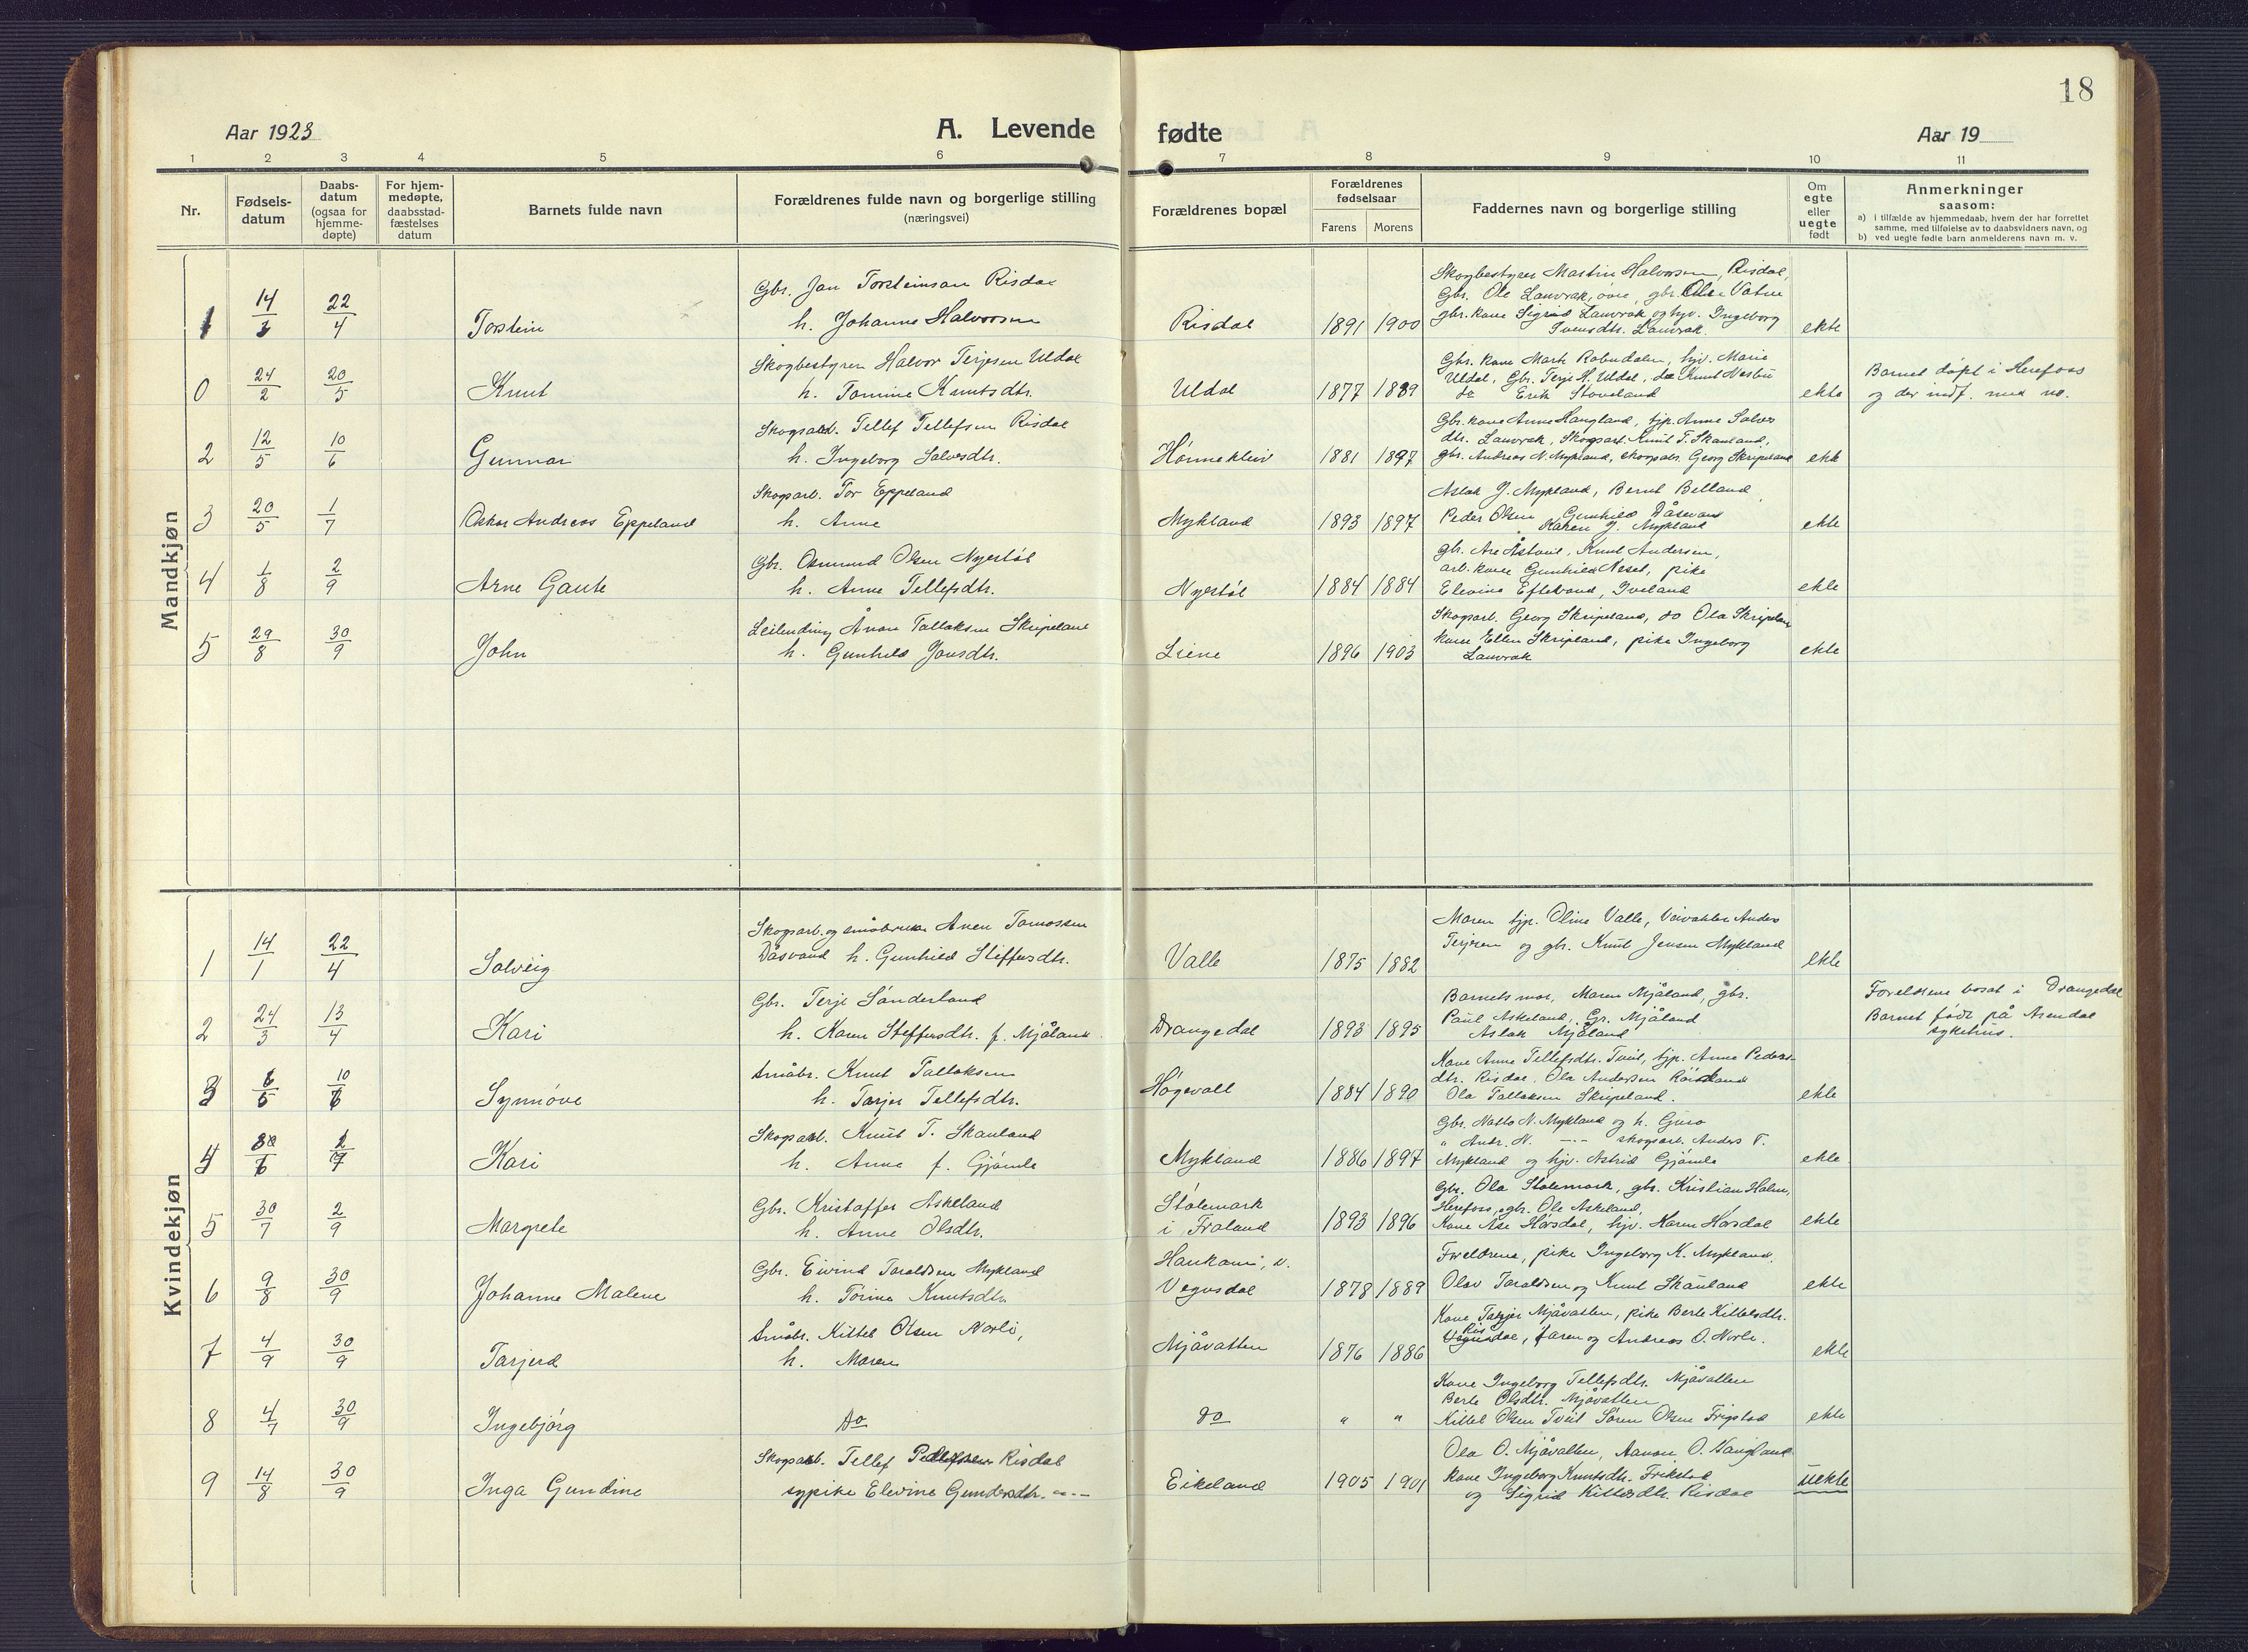 18
Aar 1923
A. Levende fødte
Aar 19
1 2 3 4 5 6 7 8 9 10 11
Nr.
Fødsels-
datum
Daabs-
datum
(ogsaa for
hjemme-
døpte)
For hjem-
medøpte,
daabsstad-
fæstelses
datum
Barnets fulde navn
Forældrenes fulde navn og borgerlige stilling
(næringsvei)
Forældrenes bopæl
Forældrenes
fødselsaar
Farens Morens
Faddernes navn og borgerlige stilling
Om
egte
eller
uegte
født
Anmerkninger
saasom:
a) i tilfælde av hjemmedaab, hvem der har forrettet
samme, med tilføielse av to daabsvidners navn, og
b) ved uegte fødte barn anmelderens navn m. v.
Mandkjøn
1 14/3 22/4 Torstein
Gbr. Jan Torsteinsen Risdal
h. Johanne Halvorsen
Risdal 1891 1900
Skogbestyrer Martin Halvorsen, Risdal,
Gbr. Ole Lauvrak, øvre, gbr. Olse Vatne
gbr. kone Sigrid Lauvrak og hjv. Ingeborg
Svensdtr. Lauvrak.
ekte
0 24/2 20/5 Knut
Skogbestyrer Halvor Terjesen Uldal
h. Tomine Knutsdtr.
Uldal 1877 1889
Gbr. kone Marte Robudalen, hjv. Marie
Uldal, Gbr. Terje H. Uldal, do Knut Nesbu
do Erik Stoveland
ekte
Barnet døpt i Herefoss
og der indf. med no.
2 12/5 10/6 Gunnar
Skogsarb. Tellef Tellefsen Risdal
h. Ingeborg Salvesdtr.
Hønnekleiv 1881 1897
Gbr. kone Anne Haugland, tjp. Anne Salves
dtr. Lauvrak, Skogsarb. Knut T. Skanland,
gbr. Andreas N. Mykland, skogsarb. Georg Skripeland
ekte
3 20/5 1/7 Oskar Andreas Eppeland
Skogsarb. Tor Eppeland
h. Anne
Mykland 1893 1897
Aslak J. Mykland, Bernt Belland,
Peder Olsen Gunhild Dåsvand
Karen J. Mykland
ekte
4 1/8 2/9 Arne Gaute
Gbr. Osmund Olsen Nyestøl
h. Anne Tellefsdtr.
Nyestøl 1884 1884
gbr. Are Åstveit, Knut Andersen,
arb. kone Gunhild Neset, pike
Elevine Eftevand, Iveland
ekte
5 29/8 30/9 John
Leilending Ånon Tallaksen Skripeland
h. Gunhild Jonsdtr.
Liene 1896 1903
Skogsarb. Georg Skripeland, do Ola Skripeland
kone Ellen Skripland, pike Ingeborg
Lauvrak
ekte
Kvindekjøn
1 14/1 22/4 Solveig
Skogsarb. og småbruker Anen Tomassen
Dåsvand h. Gunhild Steffensdtr.
Valle 1875 1882
Moren tjp. Oline Valle, Veivakter Anders
Terjesen og gbr. Knut Jensen Mykland
ekte
2 24/3 13/4 Kari
Gbr. Terje Sønderland
h. Karen Steffensdtr. f. Mjåland
Drangedal 1893 1895
Barnets mor, Maren Mjåland, gbr.
Paul Askeland, Gr. Mjåland
Aslak Mjåland
Foreldrene bosat i Drangedal
Barnet født på Arendal
sykehus.
3 6/5 10/6 Synnøve
Småbr. Knut Tallaksen
h. Tarjer Tellefsdtr.
Høgevall 1884 1890
Kone Anne Tellefsdtr. Tveit, tjp. Anne Peders-
dtr. Risdal, Ola Andersen
Ola Tallaksen Skripeland.
ekte
4 30/6 2/7 Kari
Skogsarb. Knut T. Skanland
h. Anna f. Gjømle
Mykland 1886 1897
Gbr. Natto N. Mykland og h. Guro
" Andr. N. —"— skogsarb. Anders T.
Mykland og hjv. Astrid Gjømle
ekte
5 30/7 2/9 Margrete
Gbr. Kristoffer Askeland
h. Anne Olsdtr.
Stølemark
i Froland 1893 1896
Gbr. Ola Stølemark, gbr. Kristian Holm,
Herefoss, gbr. Ole Askeland,
Kone Åse Høsdal, hjv. Karen Høsdal
ekte
6 9/8 30/9 Johanne Malene
Gbr. Eivind Taraldsen Mykland
h. Torine Knutsdtr.
Haukom, v.
Vegusdal 1878 1889
Foreldrene, pike Ingeborg K. Mykland,
Olav Taraldsen og Knut Skanland
ekte
7 4/9 30/9 Tarjerd
Småbr. Kittel Olsen Norli,
h. Maren
Mjåvatten 1876 1886
Kone Tarjer Mjåvatten, pike Berte Kittelsdtr.
Risdal, faren og Andreas O. Norli.
ekte
8 4/7 30/9 Ingebjørg
Do
do " "
Kone Ingeborg Tellefsdtr. Mjåvatten
Berte Olsdtr. Mjåvatten
Kittel Olsen Tveit Søren Olsen Frigstad
ekte
9 14/8 30/9 Inga Gundine
Skogsarb. Tellef Pedersen Risdal
sypike Elevine Gundersdtr. —"—
Eikeland 1905 1901
Ola O. Mjåvatten, Aanon O. Haugland
kone Ingeborg Knutsdtr. Frikstad
og Sigrid Kittelsdtr. Risdal
uekte